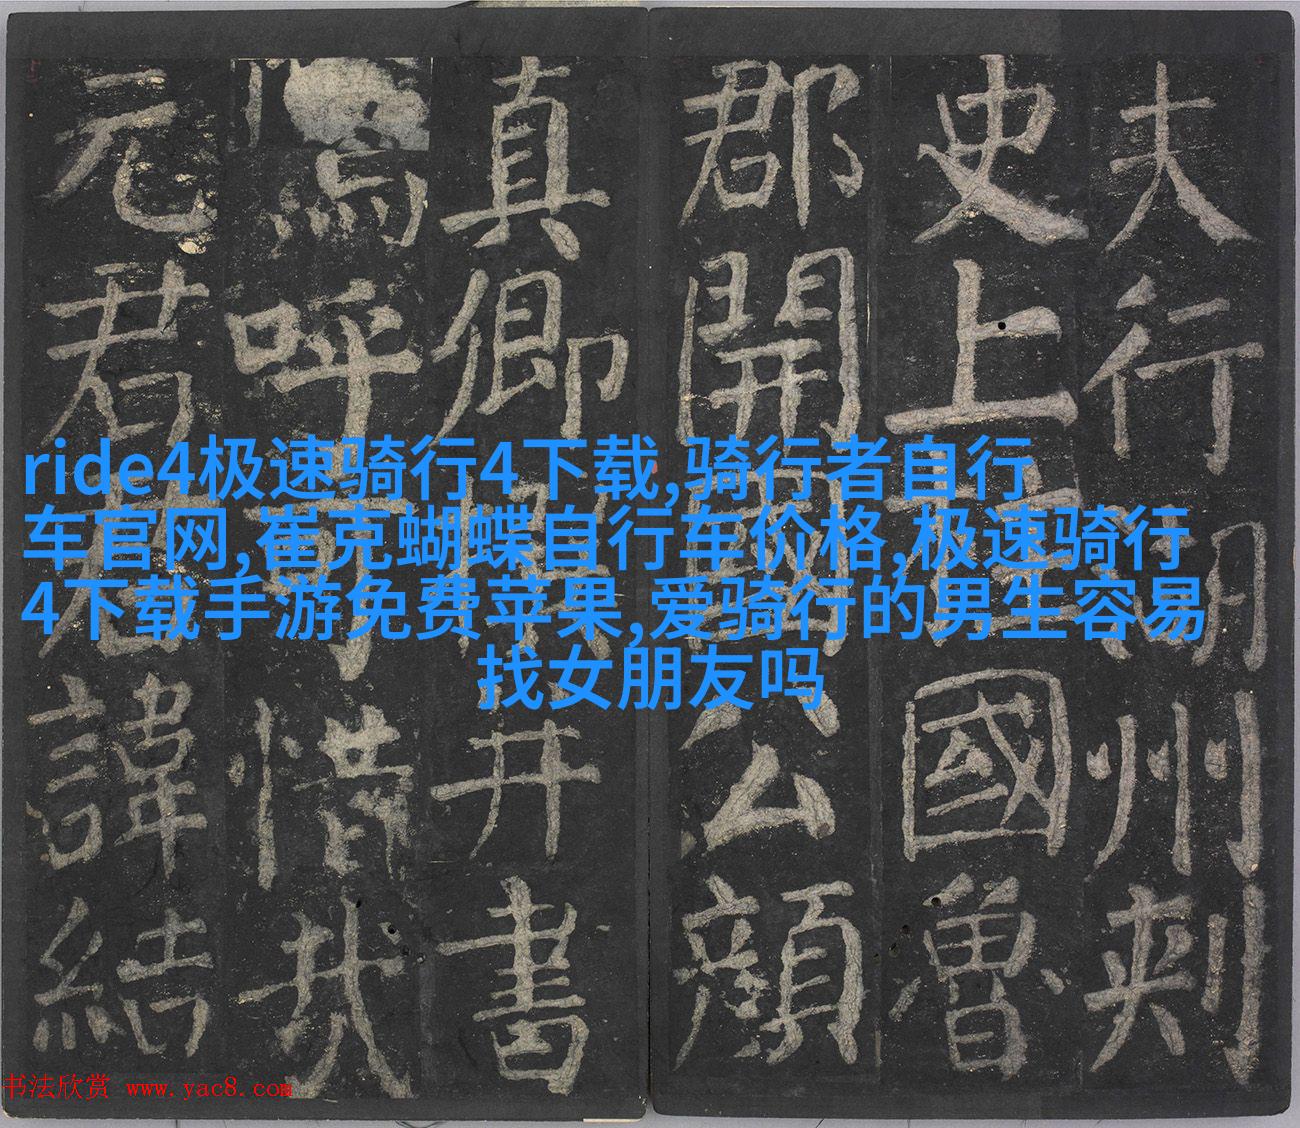 夫行湖州刺
史上國魯
郡開公顔
真卿并書
嗚呼可惜哉
元君君諱結
ride4极速骑行4下载,骑行者自行
车官网,崔克蝴蝶自行车价格,极速骑行
4下载手游免费苹果,爱骑行的男生容易
找女朋友吗
书法欣赏 www.yac8.com